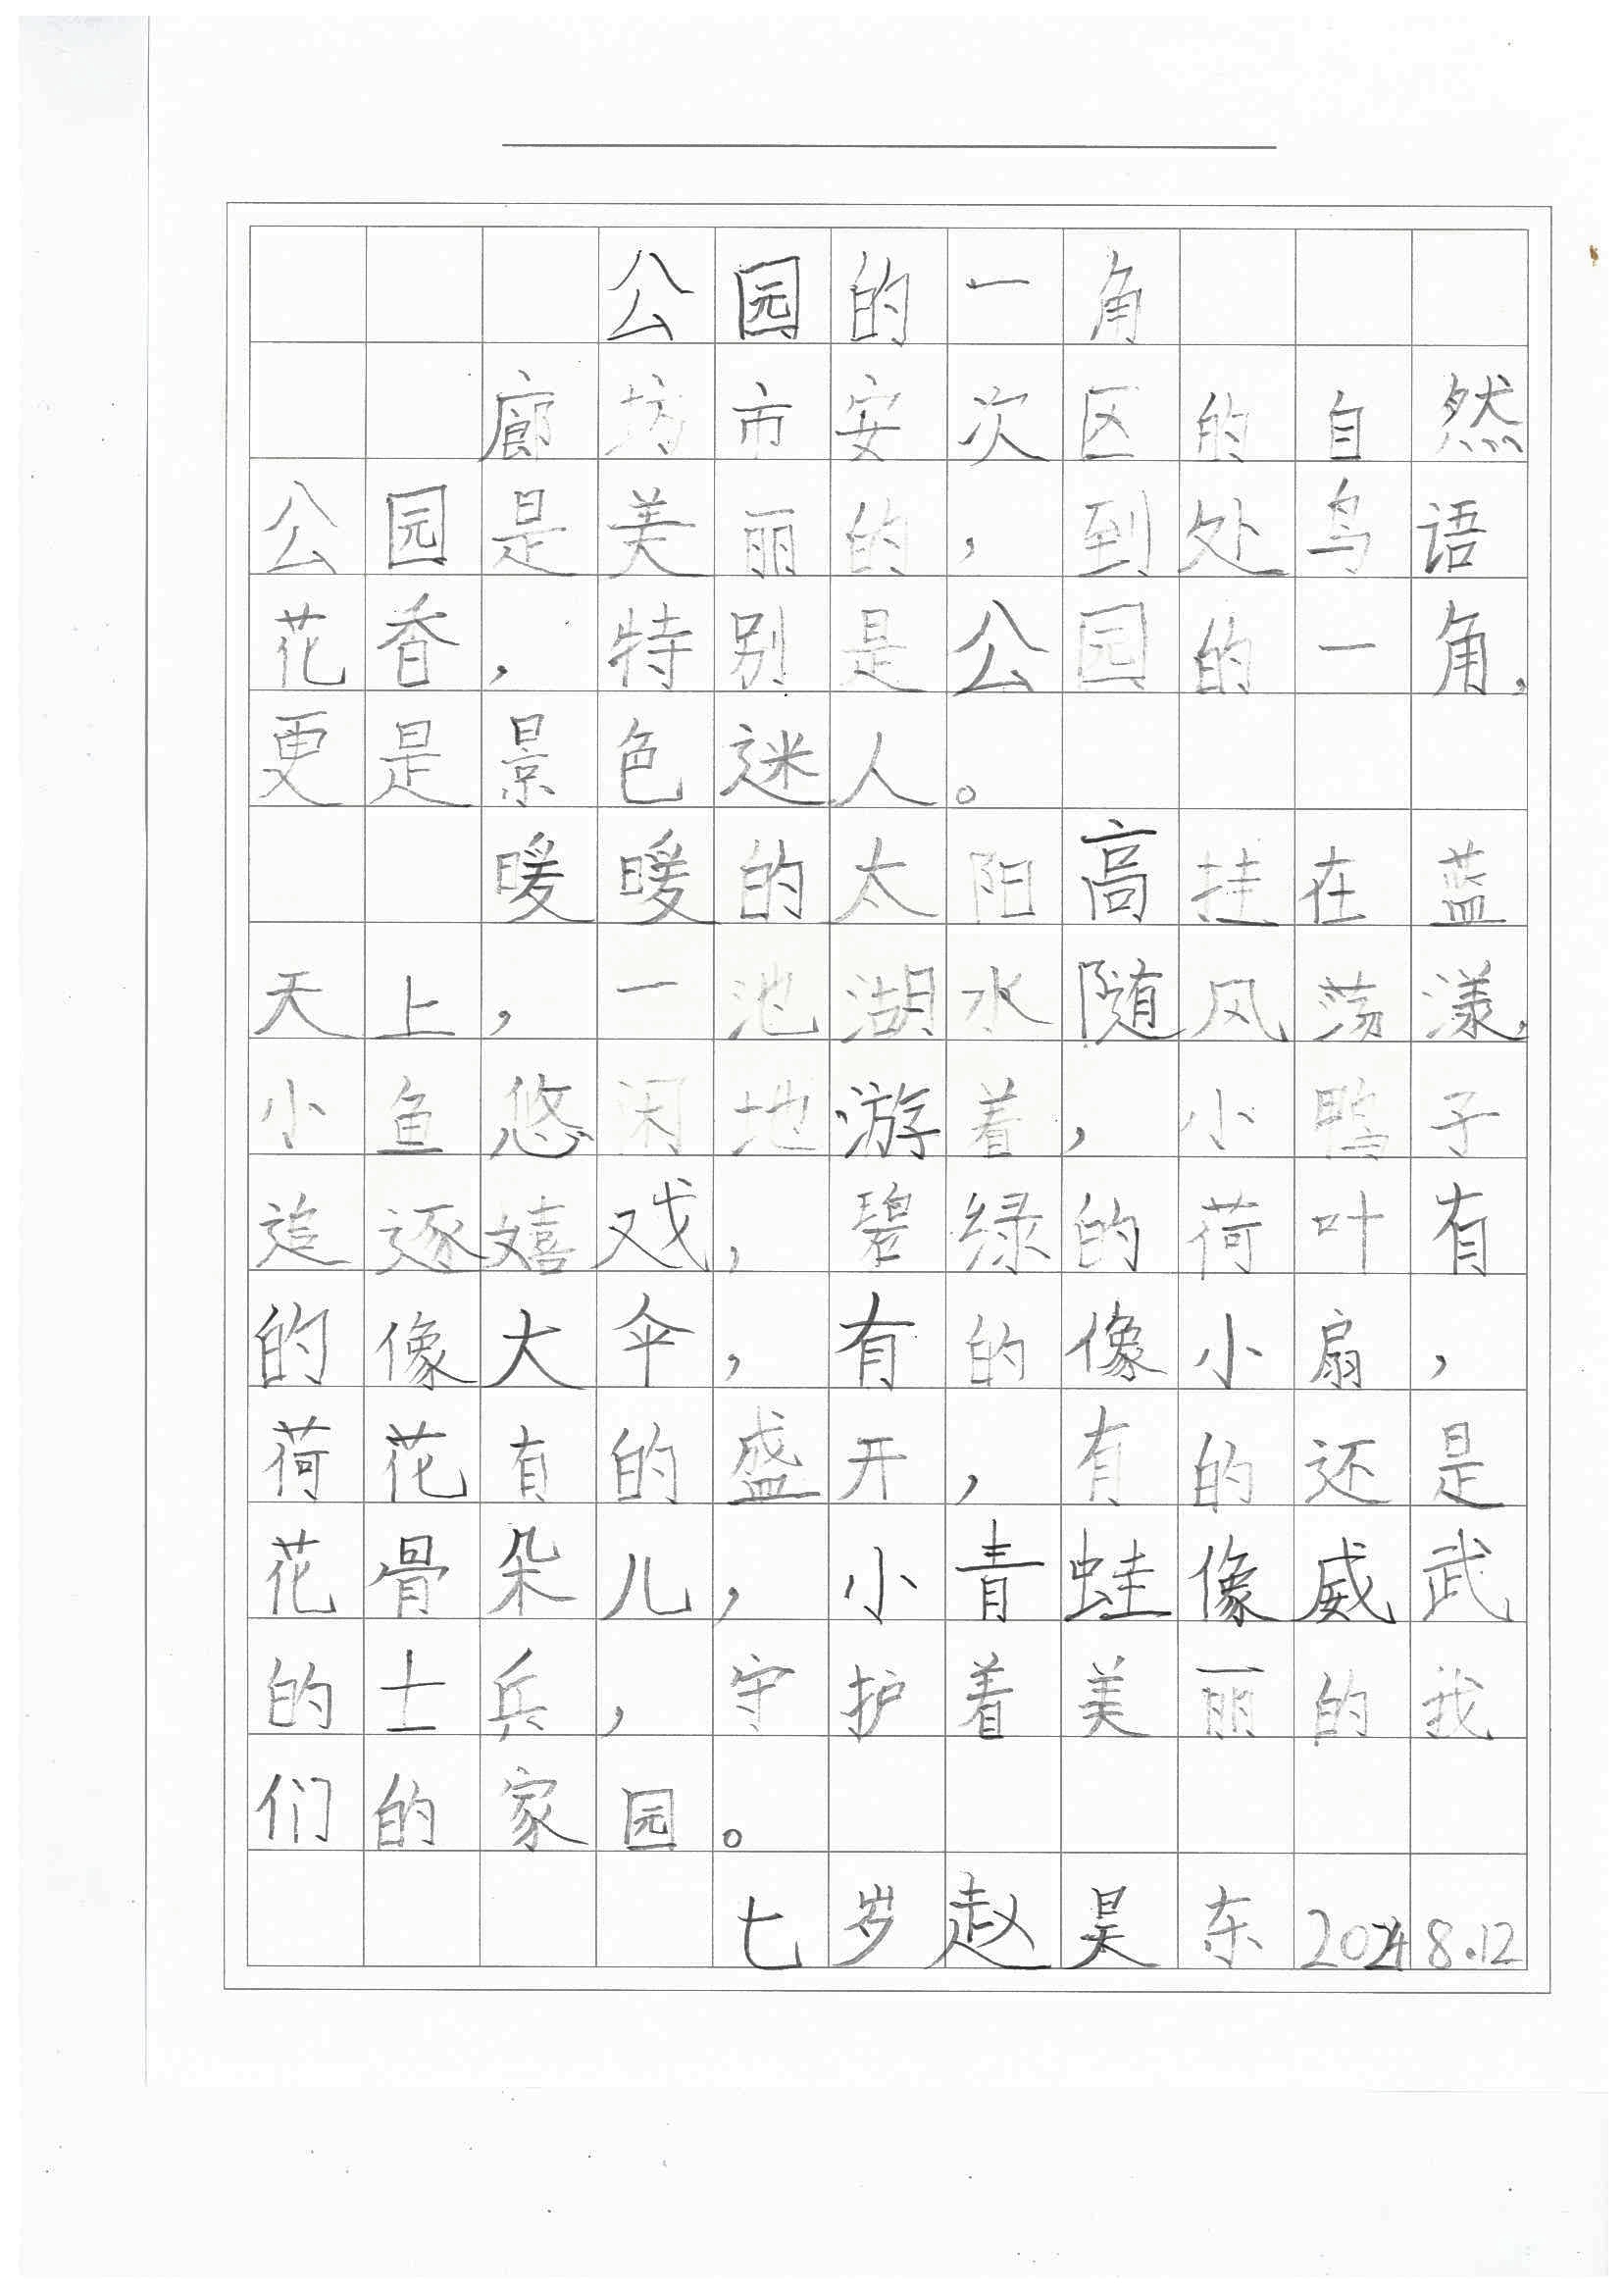 公园的一角
廊坊市安次区的自然
公园是美丽的，到处鸟语
花香，特别是公园的一角，
更是景色迷人。
暖暖的太阳高挂在蓝
天上，一池湖水随风荡漾，
小鱼悠闲地游着，小鸭子
追逐嬉戏，碧绿的荷叶有
的像大伞，有的像小扇，
荷花有的盛开，有的还是
花骨朵儿，小青蛙像威武
的士兵，守护着美丽的我
们的家园。
七岁赵昊东2024 8.12